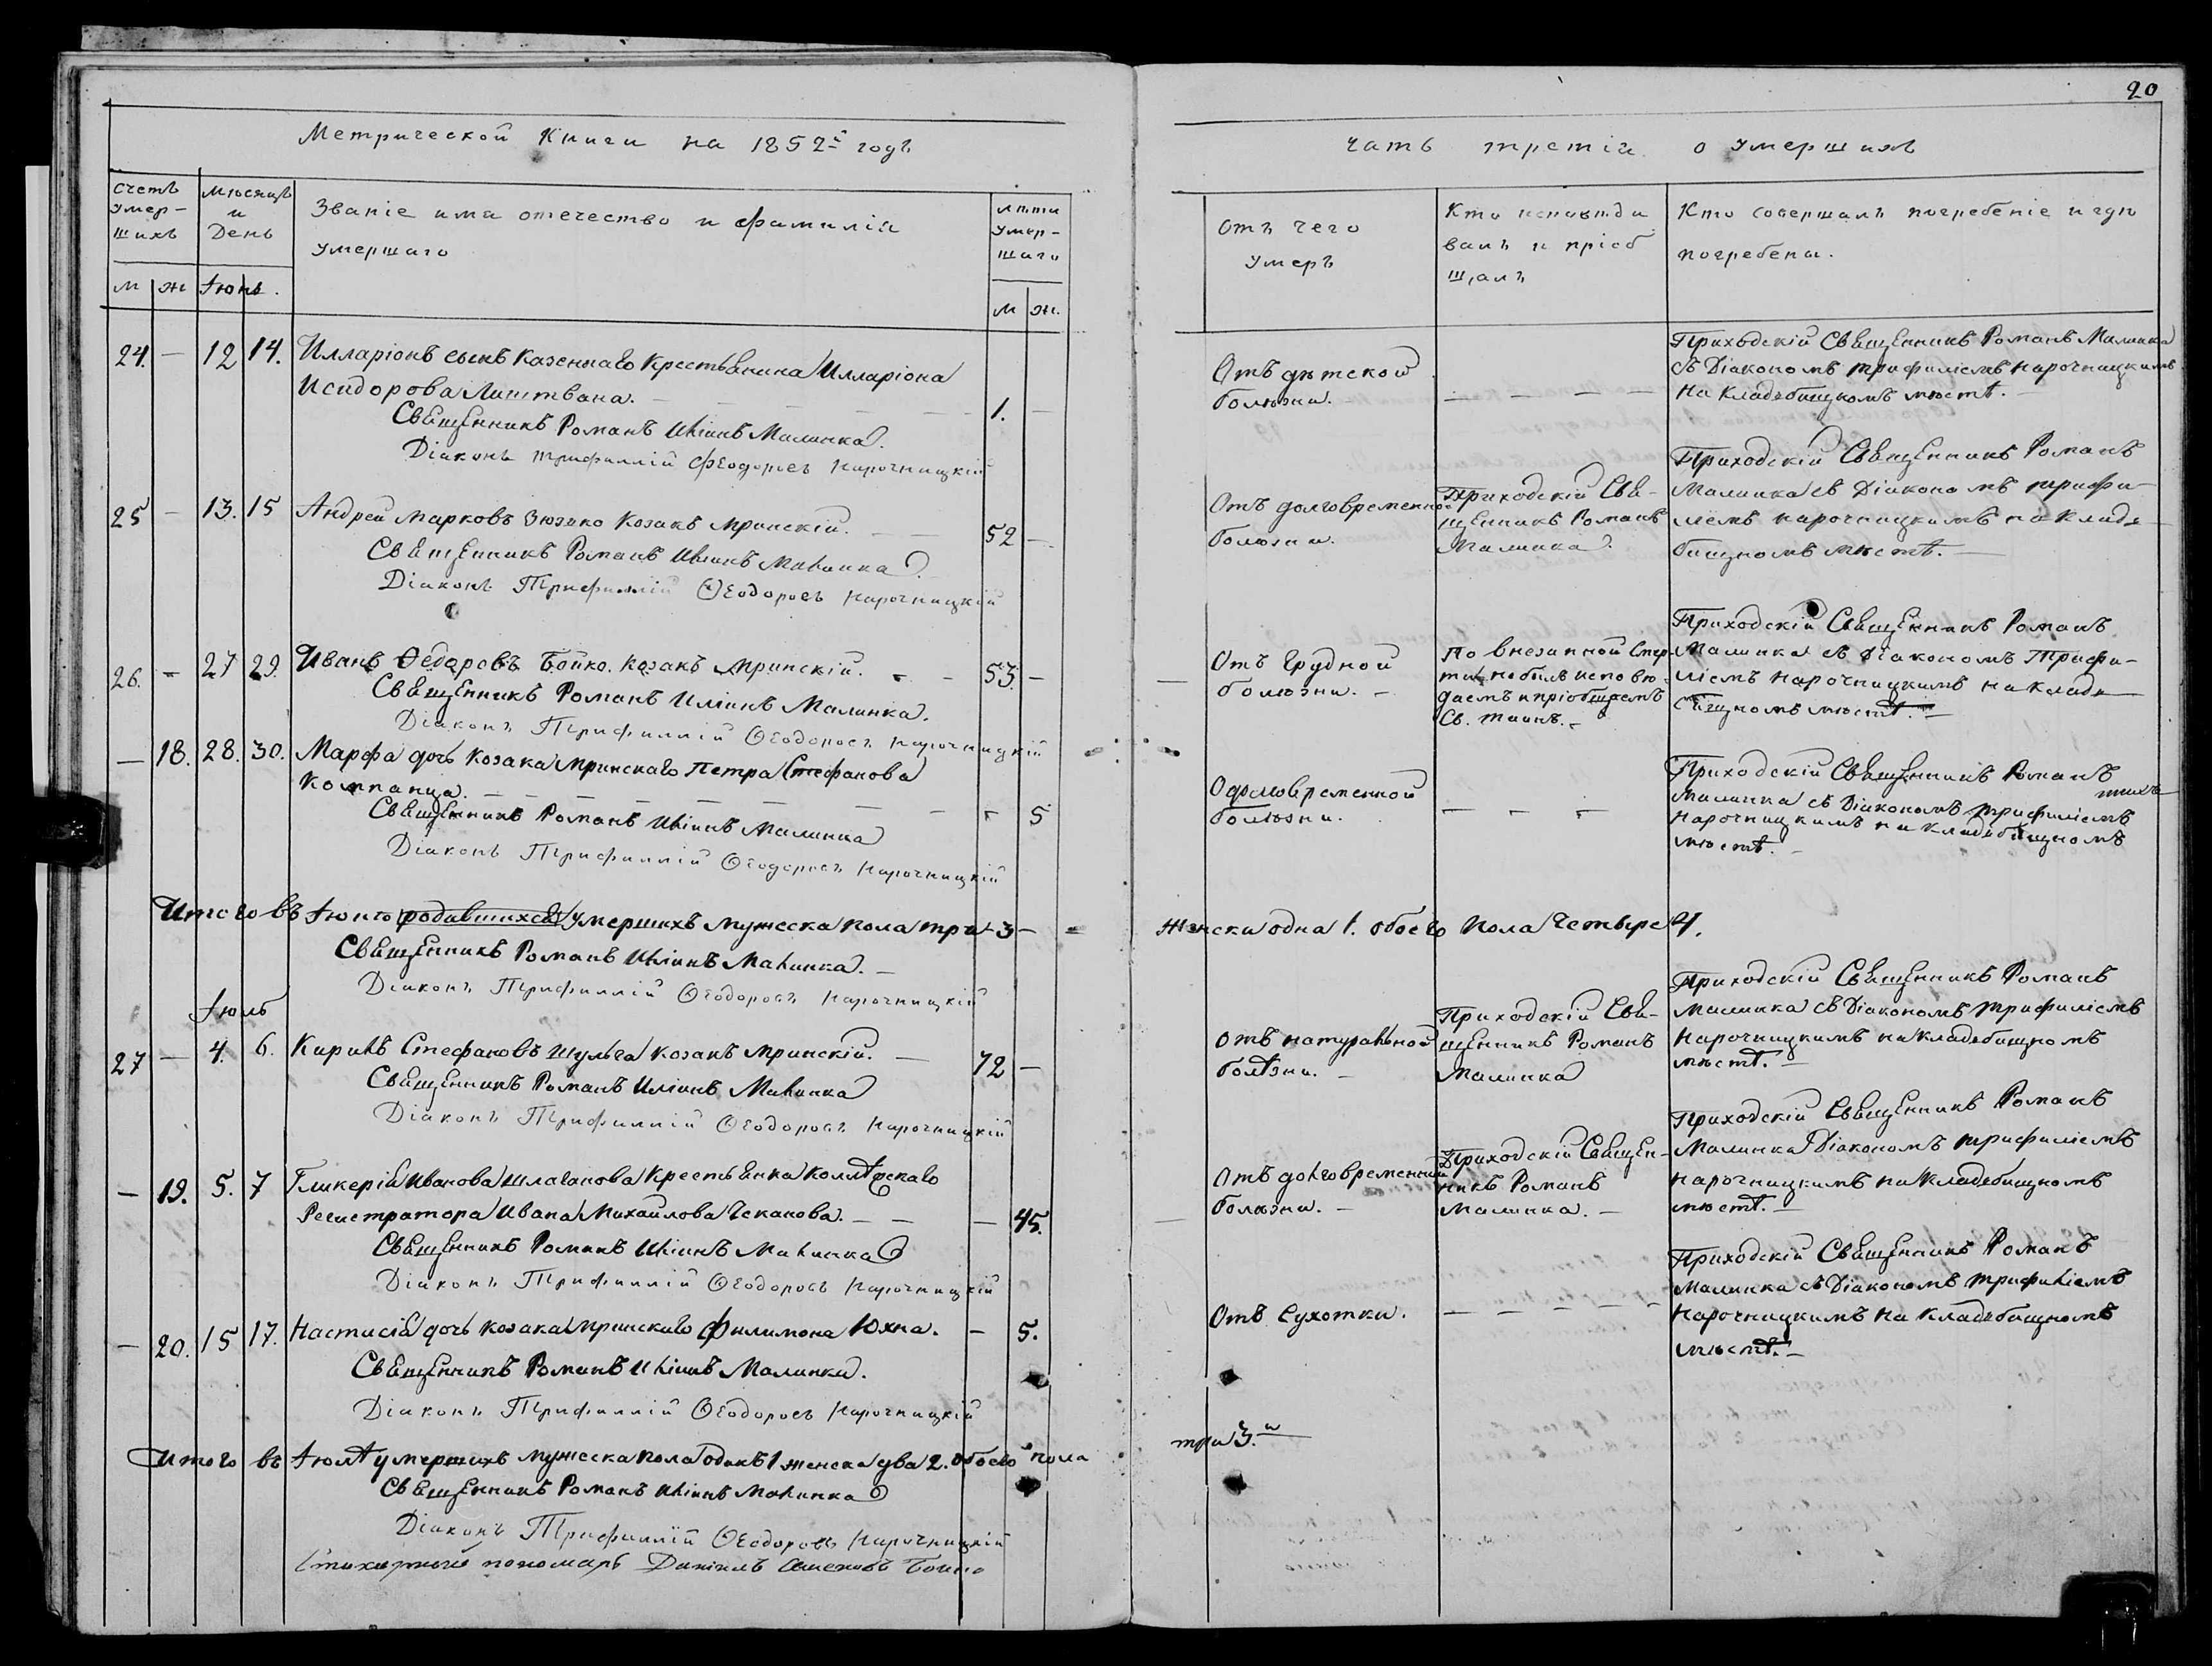 20
Метрической Книги на 1852й годъ
Счетъ умер-шихъ
Мѣсяцъ и День
Званіе имя отечество и фамилія умершаго
Лѣта умер-шаго
м ж Іюнь. м ж.
24. — 12 14. Илларіонъ сынъ казеннаго крестьянина Илларіона
Исидорова Лиштвана. — 1. —
Священникъ Романъ Иліинъ Малинка.
Діаконъ Трифиллій Феодоровъ Нарочницкій
25 — 13. 15 Андрей Марковъ Зюзько козакъ мринскій. — 52 —
Священникъ Романъ Иліинъ Малинка.
Діаконъ Трифиллій Ѳеодоровъ Нарочницкій
26. — 27 29. Иванъ Ѳедоровъ Бойко козакъ мринскій. — 53. —
Священникъ Романъ Иліинъ Малинка.
Діаконъ Трифиллій Ѳеодоровъ Нарочницкій
— 18. 28. 30. Марфа дочь козака мринскаго Петра Стефанова
Компанца. — — 5
Священникъ Романъ Иліинъ Малинка
Діаконъ Трифиллій Ѳеодоровъ Нарочницкій
Итого въ Іюнѣ родившихся умершихъ мужеска пола три 3 —
Священникъ Романъ Иліинъ Малинка. —
Діаконъ Трифиллій Ѳеодоровъ Нарочницкій
Іюль
27 — 4. 6. Кирилъ Стефановъ Шульга козакъ мринскій. — 72 —
Священникъ Романъ Иліинъ Малинка
Діаконъ Трифиллій Ѳеодоровъ Нарочницкій
— 19. 5. 7 Гликерія Иванова крестьянка
Регистратора Ивана Михайлова Чеканова. — — 45.
Священникъ Романъ Иліинъ Малинка
Діаконъ Трифиллій Ѳеодоровъ Нарочницкій
— 20. 15 17. Настасія дочь козака мринскаго Филимона Юхна. — 5.
Священникъ Романъ Иліинъ Малинка.
Діаконъ Трифиллій Ѳеодоровъ Нарочницкій
Итого въ Іюлѣ умершихъ мужеска пола одинъ 1 женска два 2. обоего пола
Священникъ Романъ Иліинъ Малинка
Діаконъ Трифиллій Ѳеодоровъ Нарочницкій
Стихарный пономарь Даніилъ Бойко
чать третіа о умершихъ
Отъ чего умеръ
Кто исповѣдывалъ и пріобщалъ
Кто совершалъ погребеніе и гдѣ погребены.
Отъ дѣтской
болѣзни. — — — —
Приходскій Священникъ Романъ Малинка
съ Діакономъ Трифиліемъ Нарочницкимъ
на кладбищномъ мѣстѣ. —
Отъ долговременной
болѣзни.
Приходскій Свя-
щенникъ Романъ
Малинка.
Приходскій Священникъ Романъ
Малинка съ Діакономъ Трифи-
ліемъ Нарочницкимъ на кладо-
бищномъ мѣстѣ. —
Отъ грудной
болѣзни. —
По внезапной смер-
ти не былъ исповѣ-
данъ и пріобщенъ
Св. таинъ. —
Приходскій Священникъ Романъ
Малинка съ Діакономъ Трифи-
ліемъ Нарочницкимъ на кладо
бищномъ мѣстѣ. —
Одолговременной
болѣзни. — — —
Приходскій Священникъ Романъ
Малинка съ Діакономъ Трифиліемъ
Нарочницкимъ на кладебищномъ
мѣстѣ. —
женски одна 1. обоего пола четыре 4.
Отъ натуральной
болѣзни. —
Приходскій Свя-
щенникъ Романъ
Малинка
Приходскій Священникъ Романъ
Малинка съ Діакономъ Трифиліемъ
Нарочницкимъ на кладебищномъ
мѣстѣ. —
Отъ долговременной
болѣзни. —
Приходскій Священ-
никъ Романъ
Малинка. —
Приходскій Священникъ Романъ
Малинка Діакономъ Трифиліемъ
Нарочницкимъ на кладебищномъ
мѣстѣ. —
Отъ сухотки. — — — —
Приходскій Священникъ Романъ
Малинка съ Діакономъ Трифиліемъ
Нарочницкимъ на кладебищномъ
мѣстѣ. —
три 3.и